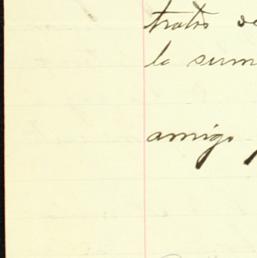 tratos
la sum
amigo